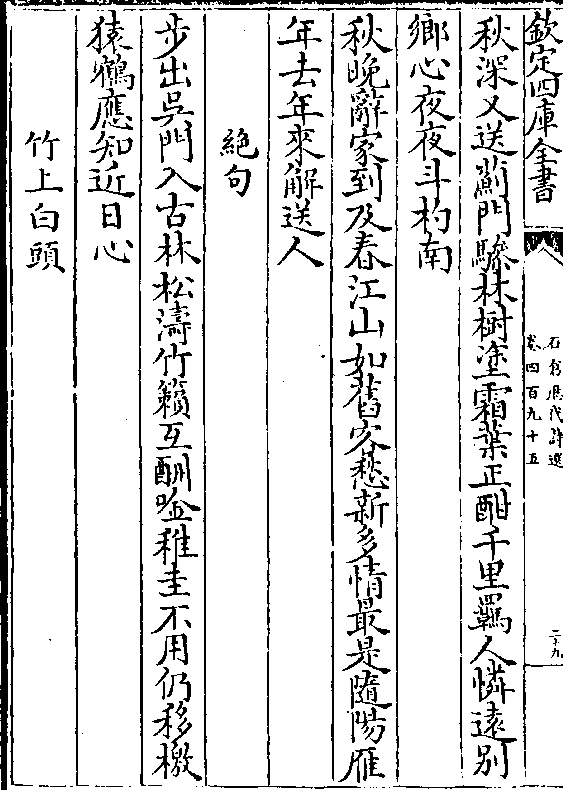 欽定四庫全書
石倉歴代詩選
卷四百九十五
二十九
秋深又送薊門驂林樹塗霜葉正酣千里羈人憐遠别
鄉心夜夜斗杓南
秋晚辭家到及春江山如舊客愁新多情最是隨陽雁
年去年來解送人
絶句
步出吳門入古林松濤竹籟互酬唫稚圭不用仍移檄
猿鶴應知近日心
竹上白頭